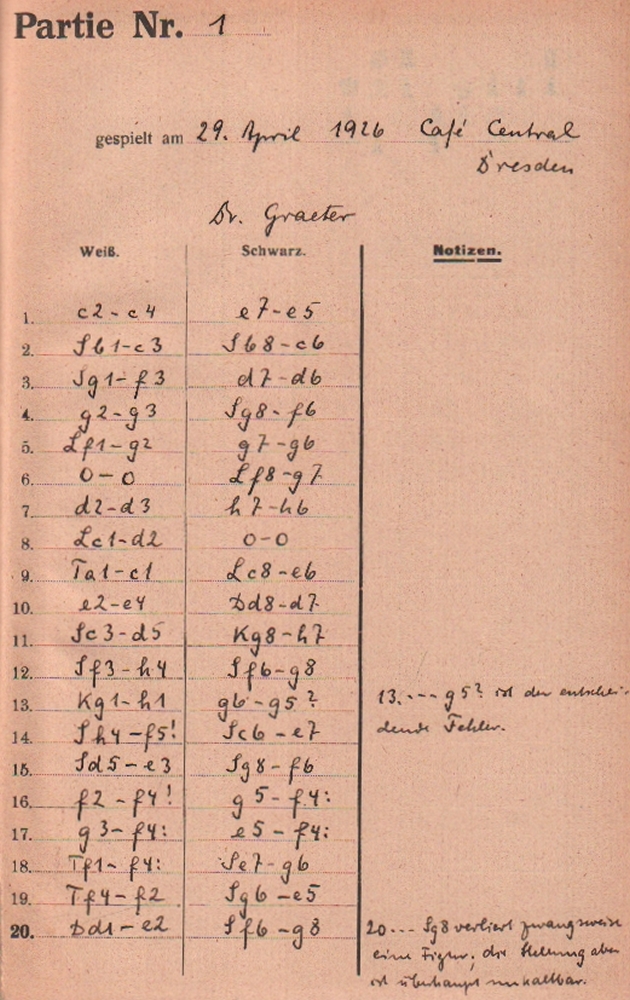 Partie Nr. 1
gespielt am 29. April 1926 Café Central
Dresden
Dr. Graeter
Weiß. Schwarz. Notizen.
1. c2-c4 e7-e5
2. Sb1-c3 Sb8-c6
3. Sg1-f3 d7-d6
4. g2-g3 Sg8-f6
5. Lf1-g2 g7-g6
6. 0-0 Lf8-g7
7. d2-d3 h7-h6
8. Lc1-d2 0-0
9. Ta1-c1 Lc8-e6
10. e2-e4 Dd8-d7
11. Sc3-d5 Kg8-h7
12. Sf3-h4 Sf6-g8
13. Kg1-h1 g6-g5? 13. --- g5? ist der entschei-
14. Sh4-f5! Sc6-e7 dende Fehler.
15. Sd5-e3 Sg8-f6
16. f2-f4! g5-f4:
17. g3-f4: e5-f4:
18. Tf1-f4: Se7-g6
19. Tf4-f2 Sg6-e5
20. Dd1-e2 Sf6-g8 20 --- Sg8 verliert zwangsweise
eine Figur; die Stellung aber
ist überhaupt unhaltbar.